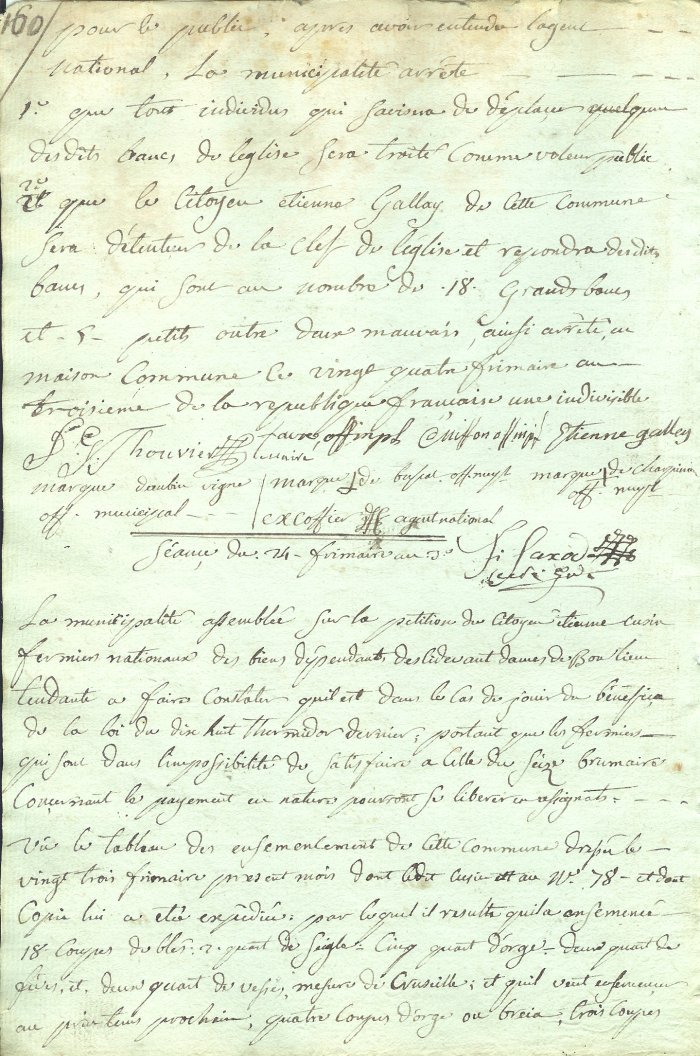 160
pour le public ; apres avoir entendu l'agent
national, La municipalité arrête
1.° que tout individus qui s'avisera de déplacer quelqun
desdits bancs de l'eglise sera traité comme voleur public
2.° que le Citoyen etienne Gallay de cette Commune
sera détenteur de la clef de l'église et repondra desdits
bancs, qui sont au nombre de 18 Grands bancs
et 5 petits outre deux mauvais, ainsi arrêté en
maison Commune Ce vingt quatre frimaire an
troisiéme de la republique francaise une indivisible
Thouvier favre off mpl Cuisson off mpl Etienne gallay
maire
marque daubin vigne marque de buscat off. muyt marque de
off. municipal excoffier agent national off. muyt
Séance du 24 frimaire an 3.e
La municipalité assemblée sur la petition du Citoyen etienne cusin
fermiers nationaux des biens dépendants des cidevant dames de Bonlieu
tendante a faire Constater quil est dans le Cas de jouir du bénéfice
de la loi du dix huit thermidor dernier ; portant que les fermiers
qui sont dans l'impossibilité de satisfaire a Celle du seize brumaire
Concernant le payement en nature pourront se liberer en assignats.
Vû le tableau des ensemencement de Cette Commune dressé le
vingt trois frimaire present mois dont ledit Cusin est au N.° 78 et dont
Copie lui a eté expédiée ; par lequel il resulte quil a ensemencé
18 Coupes de blé ; 2 quart de seigle = Cinq quart d'orge = deux quart de
féves, et, deux quart de vesses, mesure de Cruseille ; et quil veut ensemencer
au printems prochain, quatre Coupes d'orge ou breia, trois Coupes